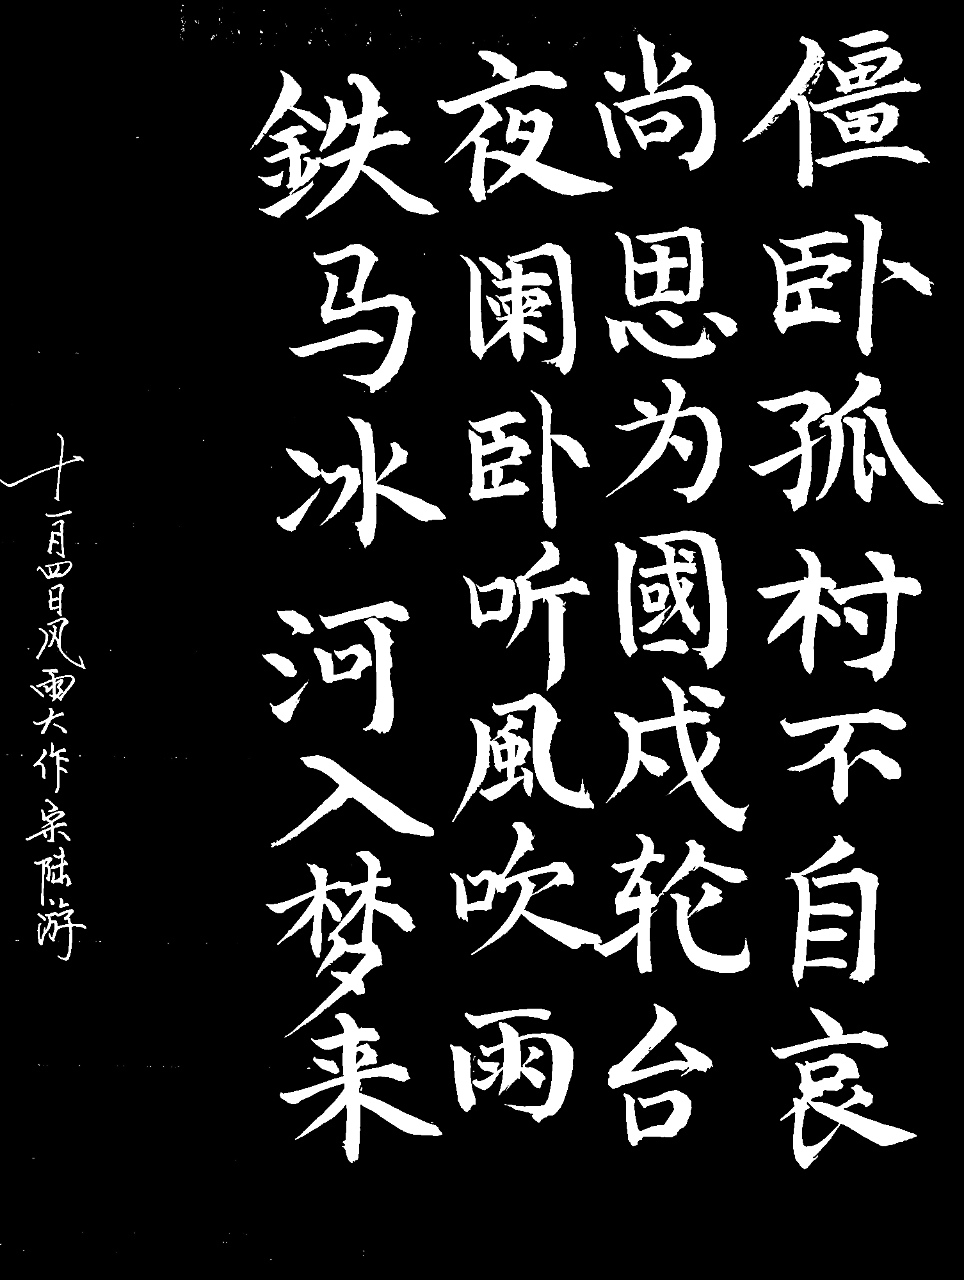 僵卧孤村不自哀
尚思为國戍轮台
夜阑卧听風吹雨
鉄马冰河入梦来
十一月四日风雨大作宋陆游